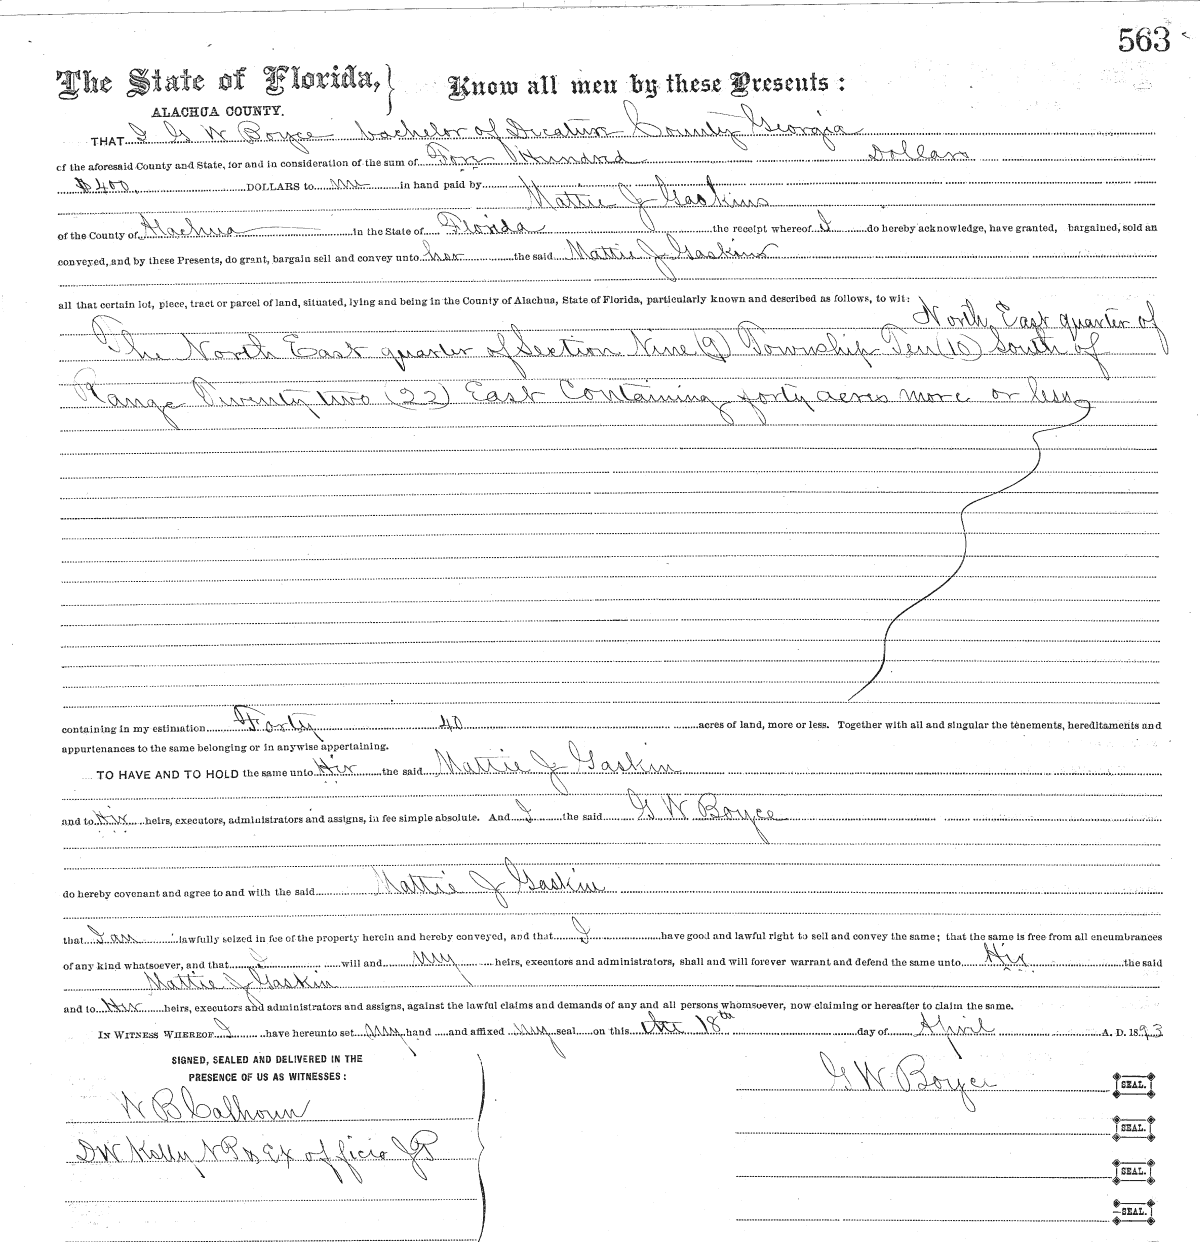 563
The State of Florida, } Know all men by these Presents :
ALACHUA COUNTY.
THAT I G W Boyce bachelor of Dicature County Georgia
of the aforesaid County and State, for and in consideration of the sum of Four Hundred Dollars
$400. DOLLARS to me in hand paid by
Mattie J Gaskins
of the County of Alachua in the State of Florida the receipt whereof I do hereby acknowledge, have granted, bargained, sold an
conveyed, and by these Presents, do grant, bargain sell and convey unto her the said Mattie J Gaskins
all that certain lot, piece, tract or parcel of land, situated, lying and being in the County of Alachua, State of Florida, particularly known and described as follows, to wit:
North East quarter of
The North East quarter of Section Nine (9) Township Ten (10) South of
Range Twenty two (22) East Containing forty acres more or less
containing in my estimation Forty 40 acres of land, more or less. Together with all and singular the tenements, hereditaments and
appurtenances to the same belonging or in anywise appertaining.
TO HAVE AND TO HOLD the same unto Hir the said Mattie J Gaskin
and to Hir heirs, executors, administrators and assigns, in fee simple absolute. And I the said G W Boyce
do hereby covenant and agree to and with the said Mattie J Gaskin
that I am lawfully seized in fee of the property herein and hereby conveyed, and that I have good and lawful right to sell and convey the same; that the same is free from all encumbrances
of any kind whatsoever, and that I will and my heirs, executors and administrators, shall and will forever warrant and defend the same unto Hir the said
Mattie J Gaskin
and to Hir heirs, executors and administrators and assigns, against the lawful claims and demands of any and all persons whomsoever, now claiming or hereafter to claim the same.
IN WITNESS WHEREOF I have hereunto set my hand and affixed my seal on this the 18th day of April A. D. 1893
SIGNED, SEALED AND DELIVERED IN THE
PRESENCE OF US AS WITNESSES :
G W Boyce SEAL.
W B Calhoun
SEAL.
D W Kelly N P & Ex officio J P
SEAL.
SEAL.